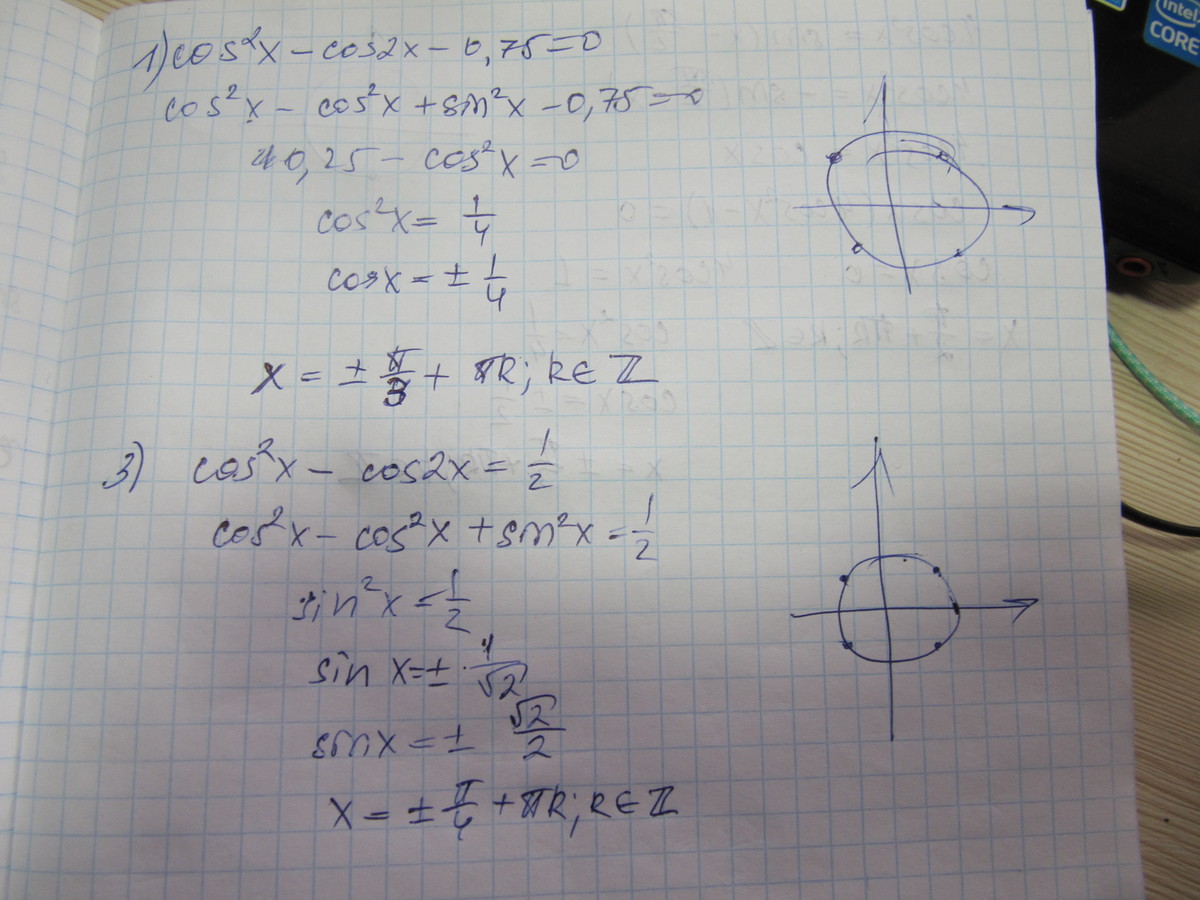 1) cos²x − cos2x − 0,75 = 0
cos²x − cos²x + sin²x − 0,75 = 0
0,25 − cos²x = 0
cos²x = 1/4
cosx = ± 1/4
x = ± π/3 + πk; k ∈ ℤ
3) cos²x − cos2x = 1/2
cos²x − cos²x + sin²x = 1/2
sin²x = 1/2
sin x = ± 1/√2
sinx = ± √2/2
x = ± π/4 + πk; k ∈ ℤ
intel
CORE